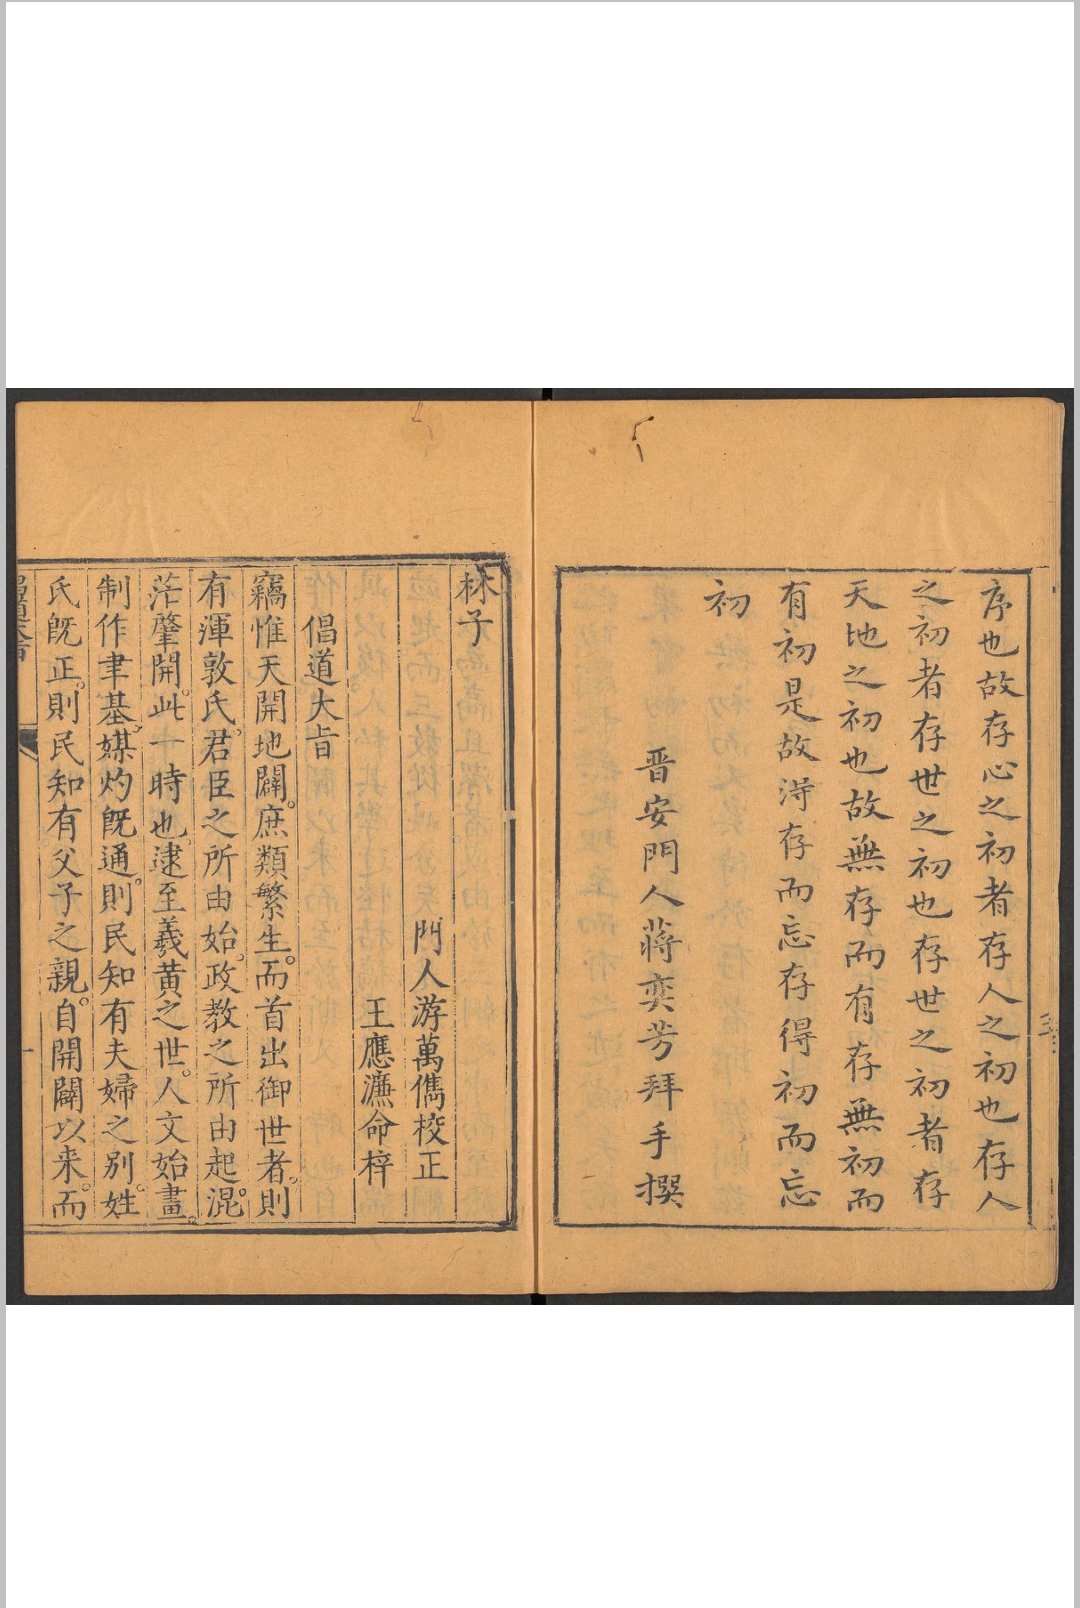 序也故存心之初者存人之初也存人
之初者存世之初也存世之初者存
天地之初也故無存而有存無初而
有初是故淂存而忘存得初而忘
初
晋安門人蔣奕芳拜手撰
林子
門人游萬儁校正
王應濂命梓
倡道大旨
竊惟天開地闢。庶類繁生。而首出御世者。則
有渾敦氏。君臣之所由始。政教之所由起。混
茫肇開。此一時也。逮至羲黃之世。人文始畫。
制作聿基。媒灼旣通。則民知有夫婦之别。姓
氏旣正。則民知有父子之親。自開闢以来。而